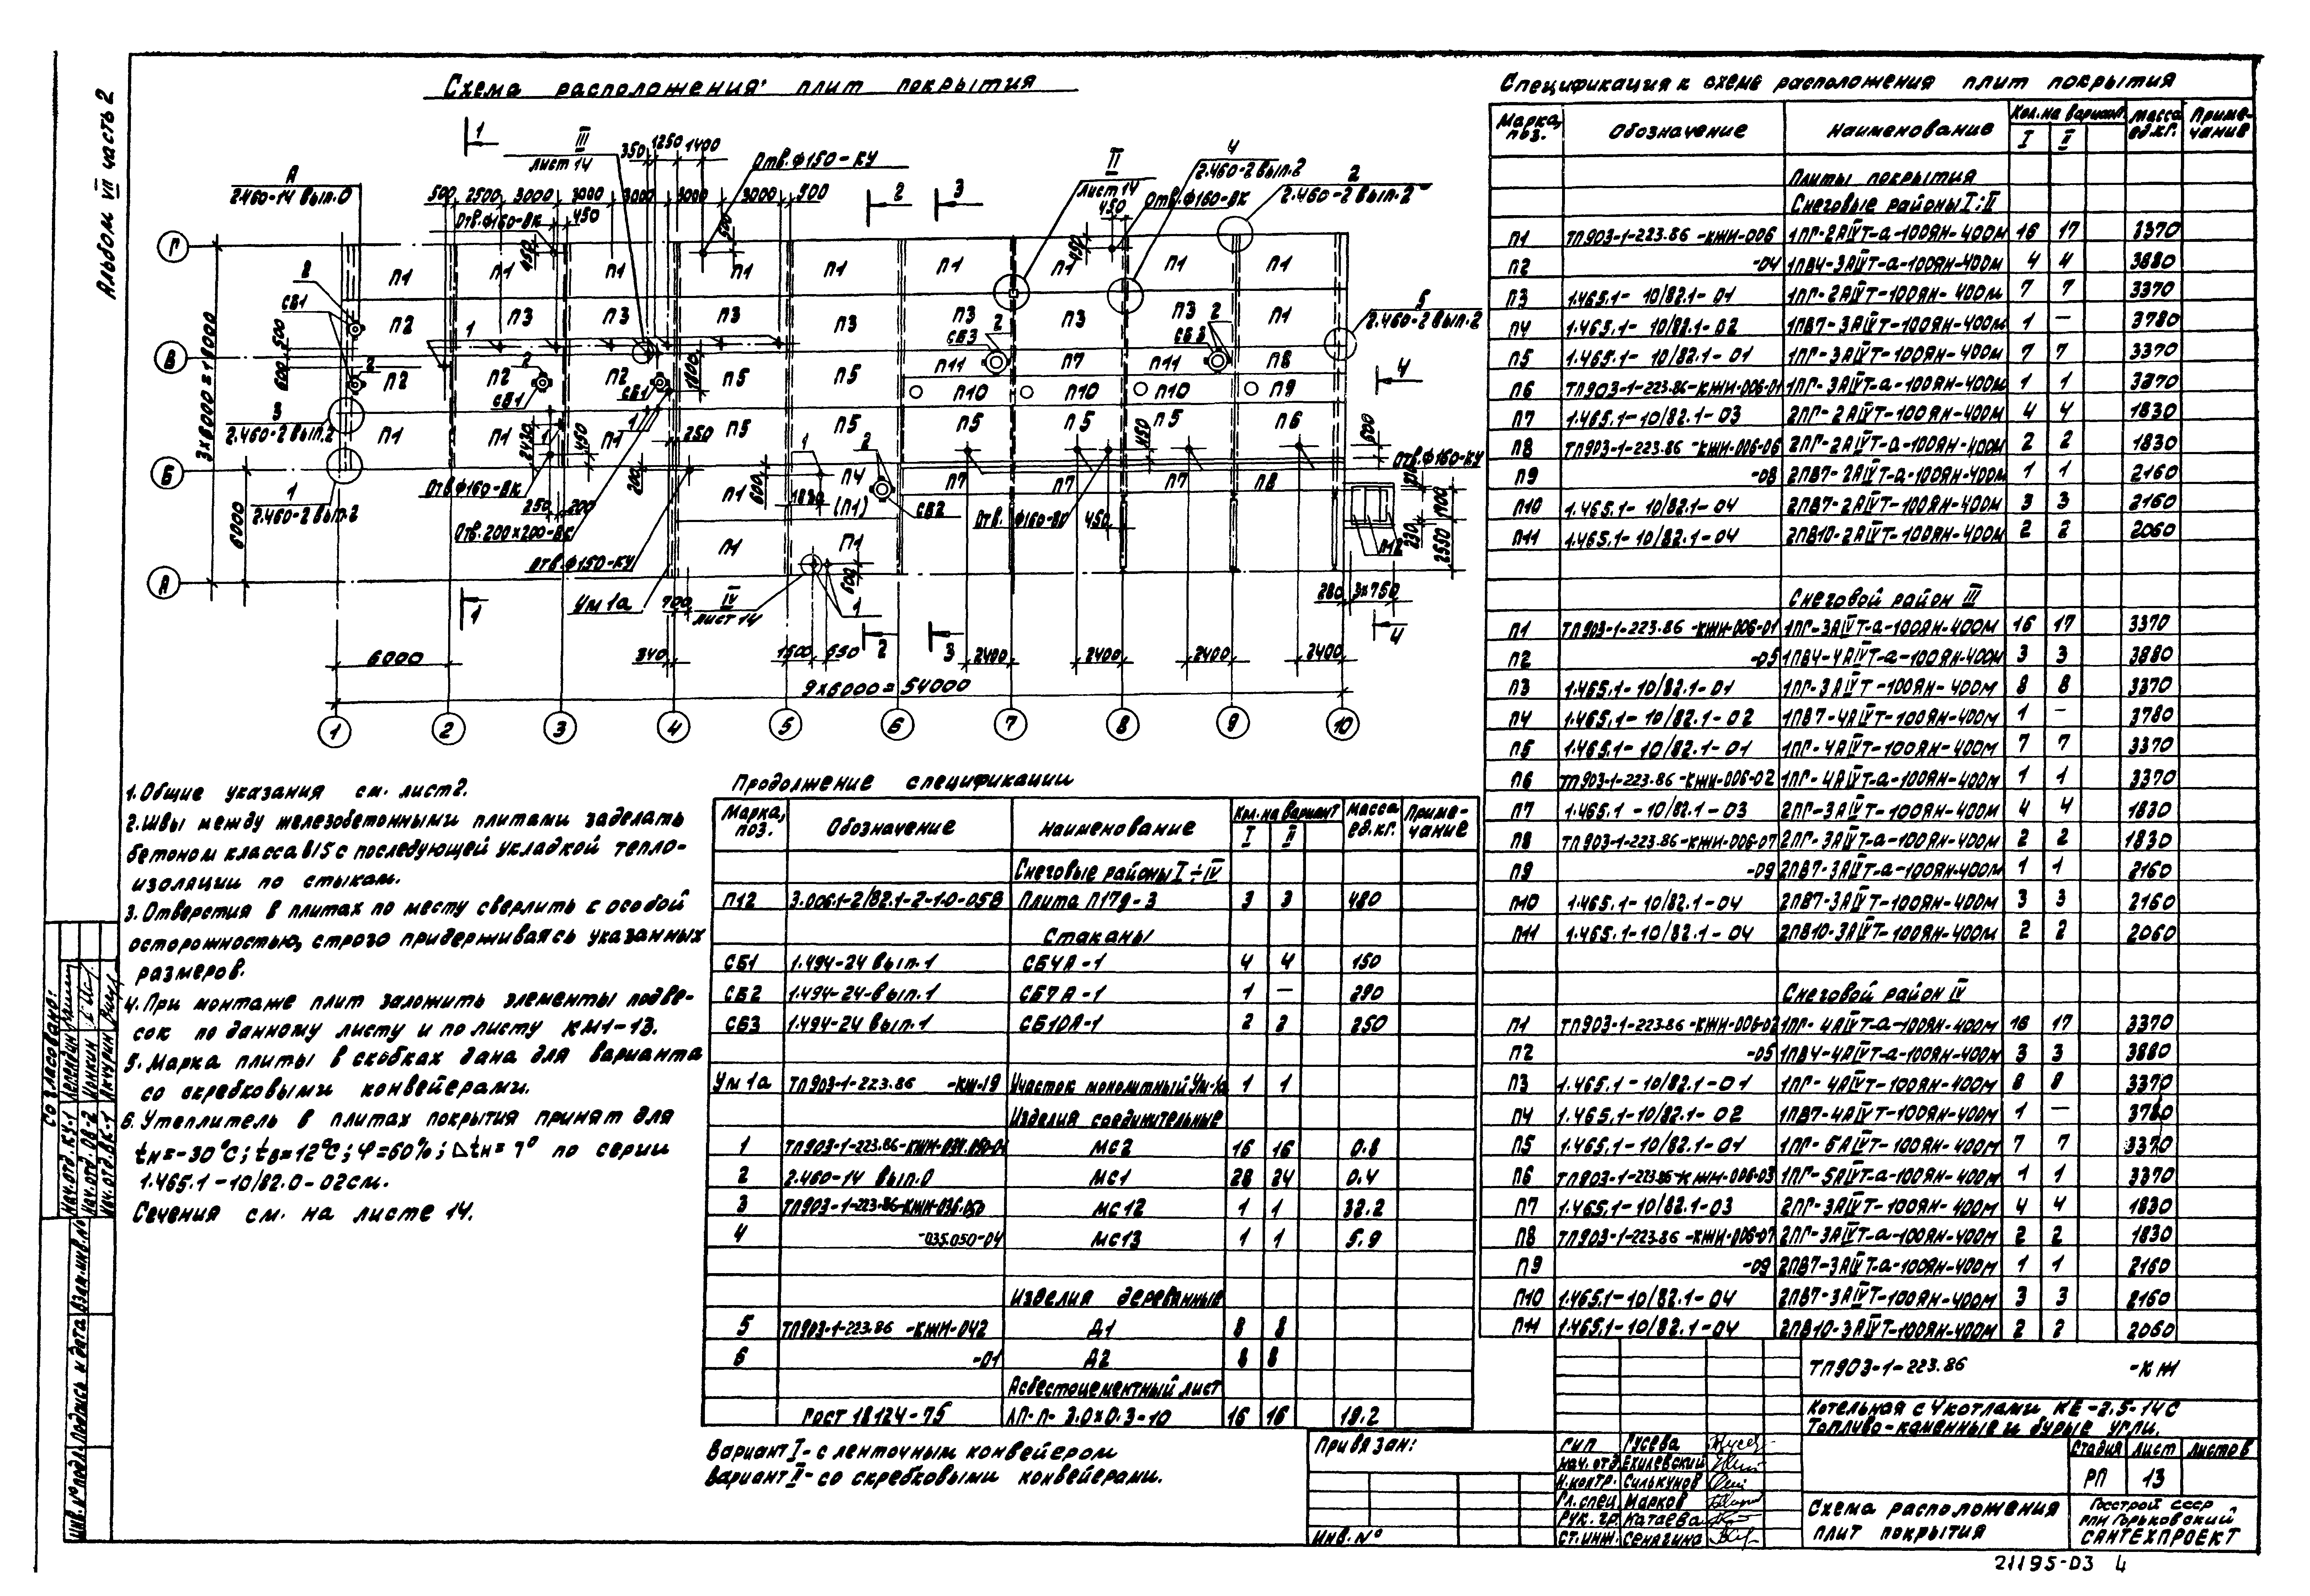 Альбом VII часть 2
Схема расположения плит покрытия
1
III
лист 14
350 1250 1400
Отв. ф150-КУ
II
лист 14
4
2.460-2 вып.2
2
2.460-2 вып.2
А
2.460-14 вып.0
500 2500 3000 3000 3000 3000 3000 500
2 3
450 Отв. ф160-ВК
Отв. ф160-ВК 450
Г
450 500 450
П1 П1 П1 П1 П1 П1 П1 П1 П1
2
СБ1
П2 П3 П3 П3 П3 П3 П3 П3 П1
5
2.460-2 вып.2
3×6000=18000
500
1
2 2
СБ3 СБ3
В
600
2 2
П2 П2 П2 П5 П5 П11 П7 П11 П8
СБ1 СБ1 1800
4
П10 П10 П10 П9
3
2.460-2 вып.2
П1 П1 П1 П5 П5 П5 П5 П5 П6
2430 1 450 1 250 1 2 450 600
Б
Отв. ф160-КУ
1
2.460-2 вып.2
Отв ф160-ВК
200 П1 600 П4 П7 П7 П7 П8
250 200 1830 (П1) СБ2 Отв. ф160-ВК 450
6000
Отв. 200×200-ВС
П12 230 1700 2550
П1 П1
Отв. ф150-КУ
А
Ум 1а 700 IV
лист 14
600 1
280 3×750
1 2 3 4
6000 340 1500 550 2400 2400 2400 2400
9×6000=54000
1 2 3 4 5 6 7 8 9 10
1. Общие указания см. лист 2.
2. Швы между железобетонными плитами заделать
бетоном класса В15 с последующей укладкой тепло-
изоляции по стыкам.
3. Отверстия в плитах по месту сверлить с особой
осторожностью, строго придерживаясь указанных
размеров.
4. При монтаже плит заложить элементы подве-
сок по данному листу и по листу КМ1-13.
5. Марка плиты в скобках дана для варианта
со скребковыми конвейерами.
6. Утеплитель в плитах покрытия принят для
tн=-30°С; tв=12°С; φ=60%; Δtн=7° по серии
1.465.1-10/82.0-02см.
Сечения см. на листе 14.
Продолжение спецификации
Марка, поз. Обозначение Наименование Кол. на вариант I II Масса ед.кг. Приме-чание
Снеговые районы I÷IV
П12 3.006.1-2/82.1-2-1.0-05В Плита П17д-3 3 3 480
Стаканы
СБ1 1.494-24 вып.1 СБ4А-1 4 4 150
СБ2 1.494-24-вып.1 СБ7А-1 1 — 290
СБ3 1.494-24 вып.1 СБ10А-1 2 2 250
Ум 1а ТП903-1-223.86 -КЖ-19 Участок монолитный Ум-1а 1 1
Изделия соединительные
1 МС2 16 16 0.8
2 2.460-14 вып.0 МС1 28 24 0.4
3 ТП903-1-223.86-КЖИ-036.050 МС12 1 1 32.2
4 -035.050-04 МС13 1 1 5.9
Изделия деревянные
5 ТП903-1-223.86 -КЖИ-042 Д1 8 8
6 -01 Д2 8 8
Асбестоцементный лист
Гост 18124-75 ЛП-П-3.0×0.3-10 16 16 19.2
Вариант I - с ленточным конвейером
Вариант II - со скребковыми конвейерами.
Спецификация к схеме расположения плит покрытия
Марка, поз. Обозначение Наименование Кол. на вариант I II Масса ед.кг. Приме-чание
Плиты покрытия
Снеговые районы I÷II
П1 ТП903-1-223.86 -КЖИ-006 1ПГ-2АIVТ-а-100ЯН-400М 16 17 3370
П2 -04 1ПВ4-3АIVТ-а-100ЯН-400М 4 4 3880
П3 1.465.1-10/82.1-01 1ПГ-2АIVТ-100ЯН-400М 7 7 3370
П4 1.465.1-10/82.1-02 1ПВ7-3АIVТ-100ЯН-400М 1 — 3780
П5 1.465.1-10/82.1-01 1ПГ-3АIVТ-100ЯН-400М 7 7 3370
П6 ТП903-1-223.86-КЖИ-006-01 1ПГ-3АIVТ-а-100ЯН-400М 1 1 3370
П7 1.465.1-10/82.1-03 2ПГ-2АIVТ-100ЯН-400М 4 4 1830
П8 ТП903-1-223.86 -КЖИ-006-06 2ПГ-2АIVТ-а-100ЯН-400М 2 2 1830
П9 -08 2ПВ7-2АIVТ-а-100ЯН-400М 1 1 2160
П10 1.465.1-10/82.1-04 2ПВ7-2АIVТ-100ЯН-400М 3 3 2160
П11 1.465.1-10/82.1-04 2ПВ10-2АIVТ-100ЯН-400М 2 2 2060
Снеговой район III
П1 ТП903-1-223.86 -КЖИ-006-01 1ПГ-3АIVТ-а-100ЯН-400М 16 17 3370
П2 -05 1ПВ4-4АIVТ-а-100ЯН-400М 3 3 3880
П3 1.465.1-10/82.1-01 1ПГ-3АIVТ-100ЯН-400М 8 8 3370
П4 1.465.1-10/82.1-02 1ПВ7-4АIVТ-100ЯН-400М 1 — 3780
П5 1.465.1-10/82.1-01 1ПГ-4АIVТ-100ЯН-400М 7 7 3370
П6 ТП903-1-223.86 -КЖИ-006-02 1ПГ-4АIVТ-а-100ЯН-400М 1 1 3370
П7 1.465.1-10/82.1-03 2ПГ-3АIVТ-100ЯН-400М 4 4 1830
П8 ТП903-1-223.86-КЖИ-006-07 2ПГ-3АIVТ-а-100ЯН-400М 2 2 1830
П9 -09 2ПВ7-3АIVТ-а-100ЯН-400М 1 1 2160
П10 1.465.1-10/82.1-04 2ПВ7-3АIVТ-100ЯН-400М 3 3 2160
П11 1.465.1-10/82.1-04 2ПВ10-3АIVТ-100ЯН-400М 2 2 2060
Снеговой район IV
П1 ТП903-1-223.86 -КЖИ-006-02 1ПГ-4АIVТ-а-100ЯН-400М 16 17 3370
П2 -05 1ПВ4-4АIVТ-а-100ЯН-400М 3 3 3880
П3 1.465.1-10/82.1-01 1ПГ-4АIVТ-100ЯН-400М 8 8 3370
П4 1.465.1-10/82.1-02 1ПВ7-4АIVТ-100ЯН-400М 1 — 3780
П5 1.465.1-10/82.1-01 1ПГ-5АIVТ-100ЯН-400М 7 7 3370
П6 ТП903-1-223.86-КЖИ-006-03 1ПГ-5АIVТ-а-100ЯН-400М 1 1 3370
П7 1.465.1-10/82.1-03 2ПГ-3АIVТ-100ЯН-400М 4 4 1830
П8 ТП903-1-223.86 -КЖИ-006-07 2ПГ-3АIVТ-а-100ЯН-400М 2 2 1830
П9 -09 2ПВ7-3АIVТ-а-100ЯН-400М 1 1 2160
П10 1.465.1-10/82.1-04 2ПВ7-3АIVТ-100ЯН-400М 3 3 2160
П11 1.465.1-10/82.1-04 2ПВ10-3АIVТ-100ЯН-400М 2 2 2060
ТП903-1-223.86 -КЖ
Котельная с 4 котлами КЕ-2,5-14С
Топливо-каменные и бурые угли.
Стадия Лист Листов
РП 13
Схема расположения
плит покрытия
Госстрой СССР
ГПИ Горьковский
САНТЕХПРОЕКТ
Привязан:
Инв. №
ГИП Гусева
Нач. отд. Ехилевский
Н.контр. Силькунов
Гл.спец. Марков
Рук. гр. Катаева
Ст.инж. Сенягина
Согласовано:
Нач. отд. КУ-1
Нач. отд. ОВ-2 Монкин
Нач. отд. ВК-1 Аккурин
Взам. инв. №
Подпись и дата
Инв. № подл.
21195-03 4